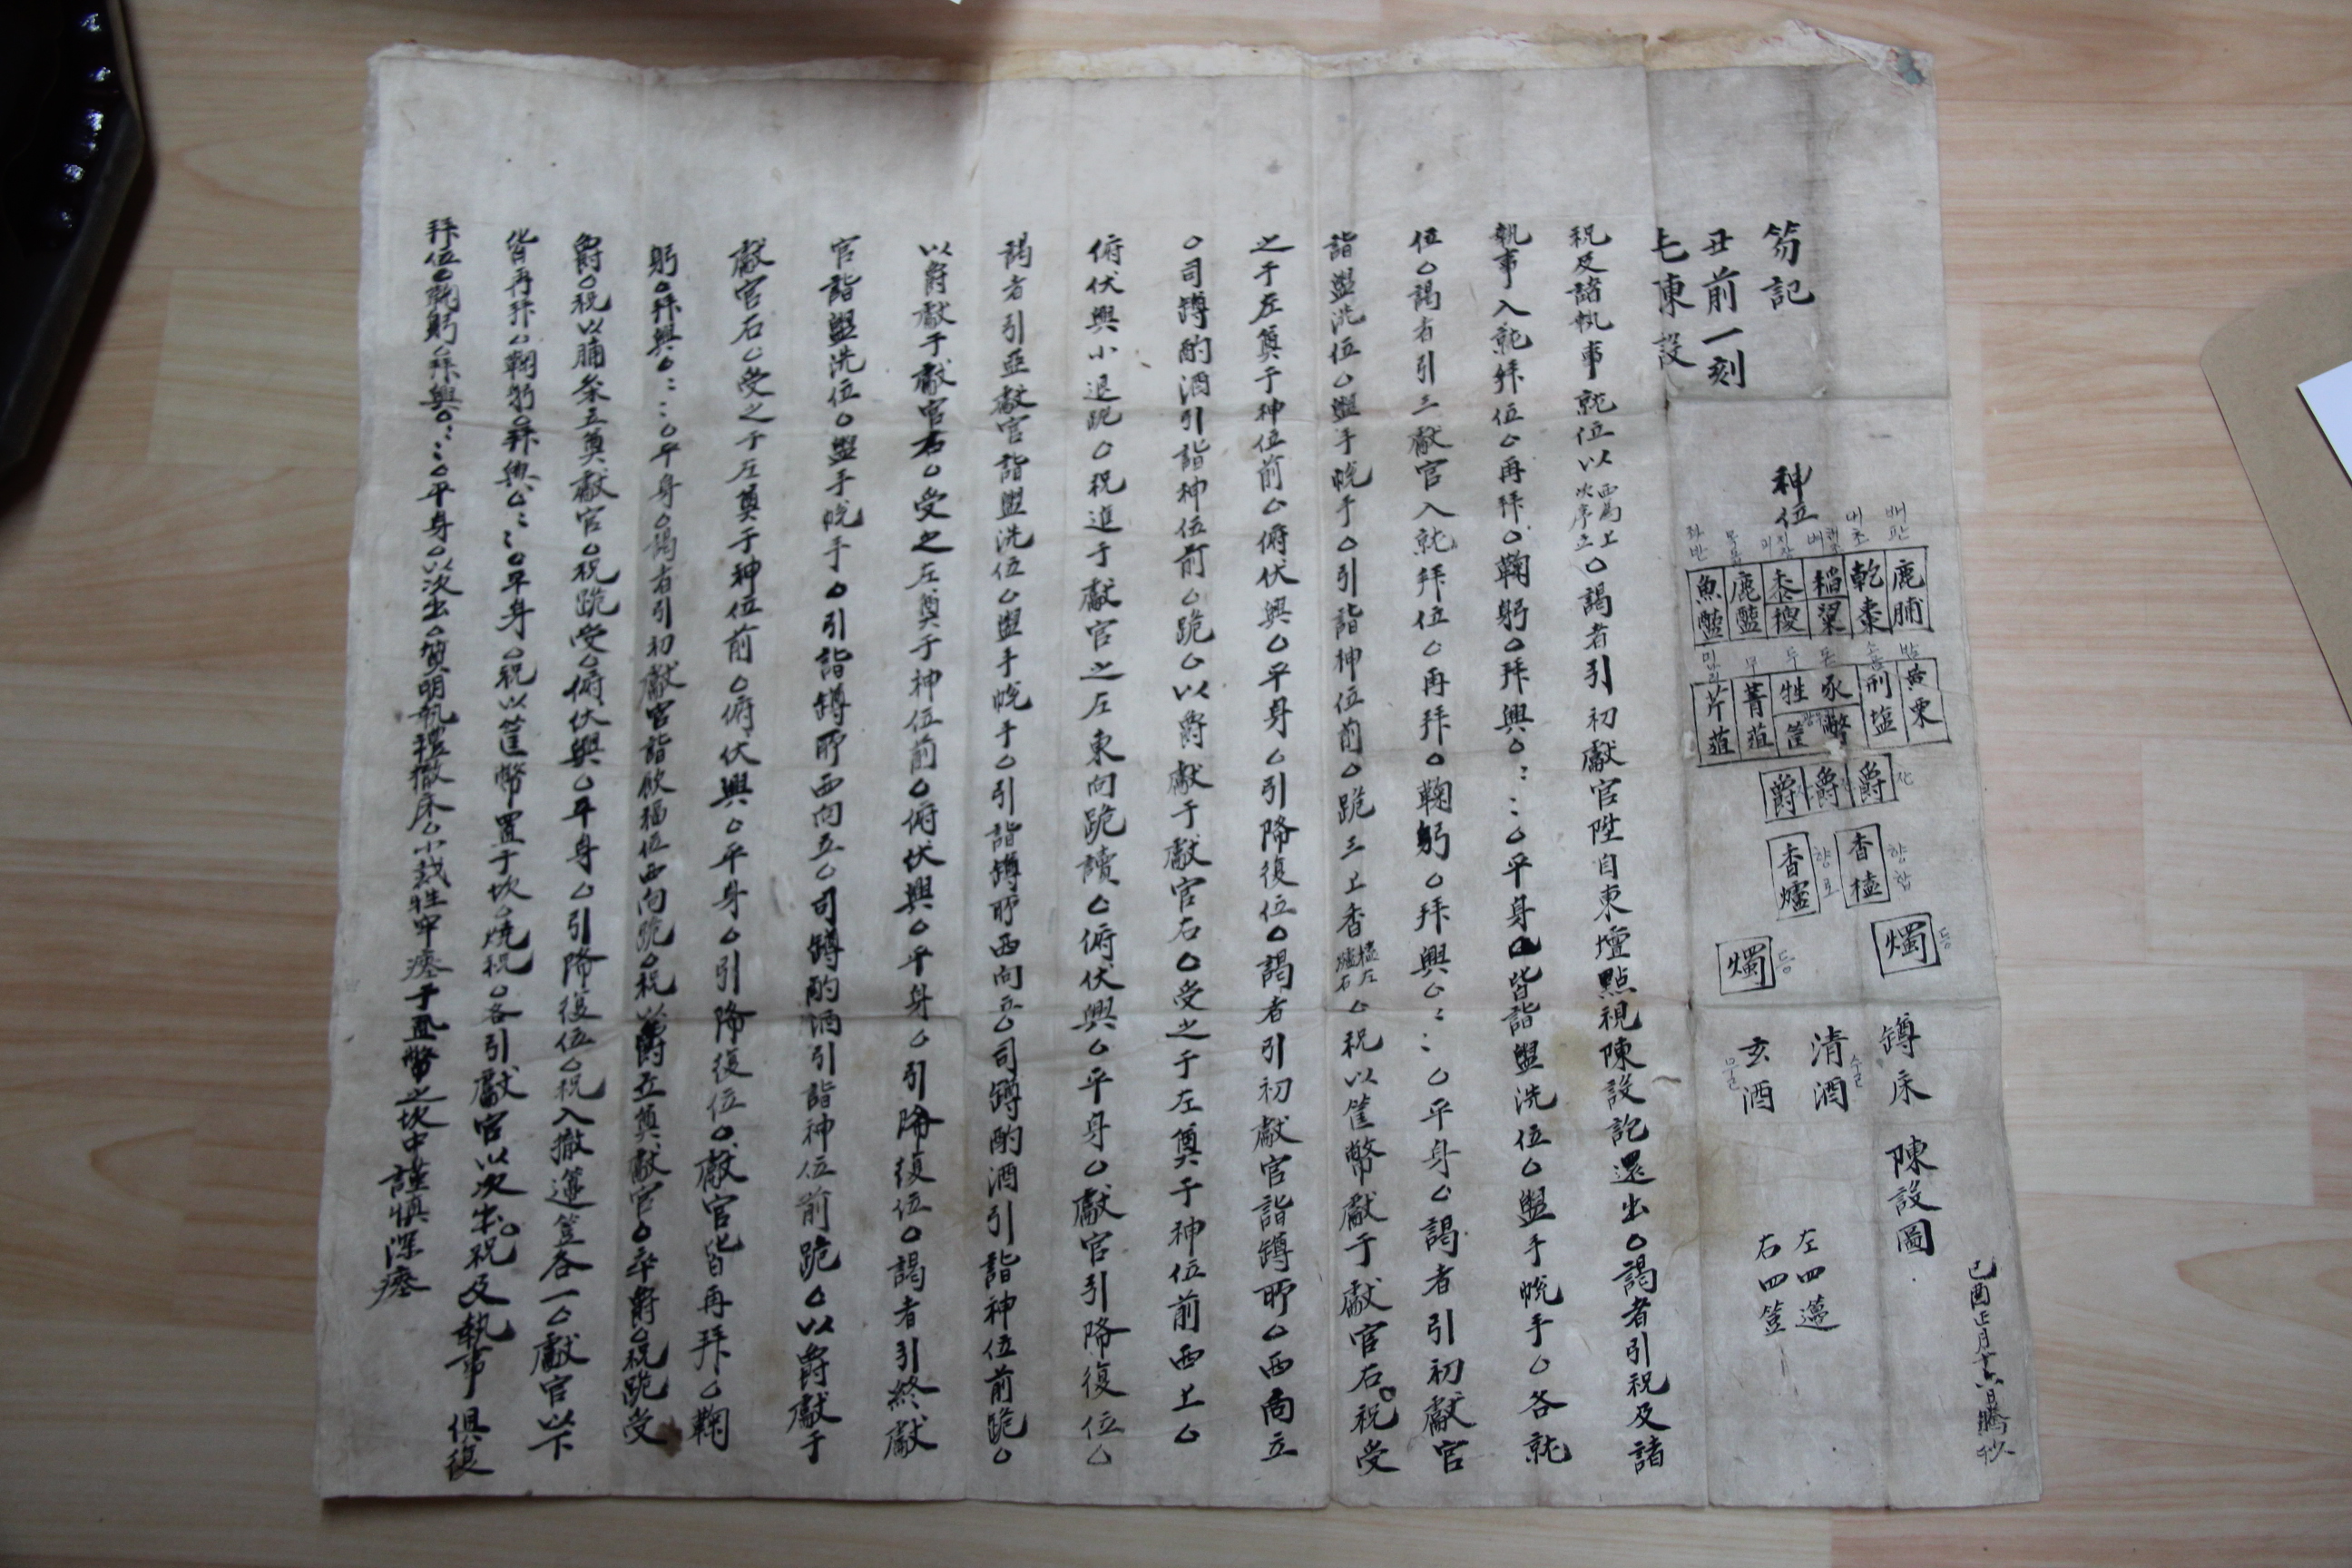 笏記
丑前一刻
七東設
神位
배판
내초
배해조
미지장
목육
좌반
鹿脯
乾棗
稻粱
黍稷
鹿醢
魚醢
밤
소금
돈
두
무
미나리
黃栗
刑塩
牲豕
篚幣
菁菹
芹菹
爵 爵 爵 잔
香榼 향합
香爐 향로
燭 등
燭 등
罇床 陳設圖
清酒 수굴
玄酒 무굴
左四邊
右四笠
己酉正月十六日謄抄
祝及諸執事就位以西爲上次序立○謁者引初獻官陞自東壇點視陳設訖還出○謁者引祝及諸
執事入就拜位○再拜○鞠躬○拜興○⋮⋮○平身○皆詣盥洗位○盥手帨手○各就
位○謁者引三獻官入就拜位○再拜○鞠躬○拜興○⋮⋮○平身○謁者引初獻官
詣盥洗位○盥手帨手○引詣神位前○跪三上香榼左爐右○祝以篚幣獻于獻官右○祝受
之于左奠于神位前○俯伏興○平身○引降復位○謁者引初獻官詣罇所○西向立
○司罇酌酒引詣神位前○跪○以爵獻于獻官右○受之于左奠于神位前西上○
俯伏興小退跪○祝進于獻官之左東向跪讀○俯伏興○平身○獻官引降復位○
謁者引亞獻官詣盥洗位○盥手帨手○引詣罇所西向立○司罇酌酒引詣神位前跪○
以爵獻于獻官右○受之左奠于神位前○俯伏興○平身○引降復位○謁者引終獻
官詣盥洗位○盥手帨手○引詣罇所西向立○司罇酌酒引詣神位前跪○以爵獻于
獻官右○受之于左奠于神位前○俯伏興○平身○引降復位○獻官皆再拜○鞠
躬○拜興○⋮⋮○平身○謁者引初獻官詣飮福位西向跪○祝以爵立奠獻官○卒爵○祝跪受
爵○祝以脯条立奠獻官○祝跪受○俯伏興○平身○引降復位○祝入撤邊笠各一○獻官以下
皆再拜○鞠躬○拜興○⋮⋮○平身○祝以篚幣置于坎○燒祝○各引獻官以次出○祝及執事俱復
拜位○鞠躬○拜興○⋮⋮○平身○以次出○質明執禮撤床○小裁牲甲瘞于盃幣之坎中謹愼深瘞